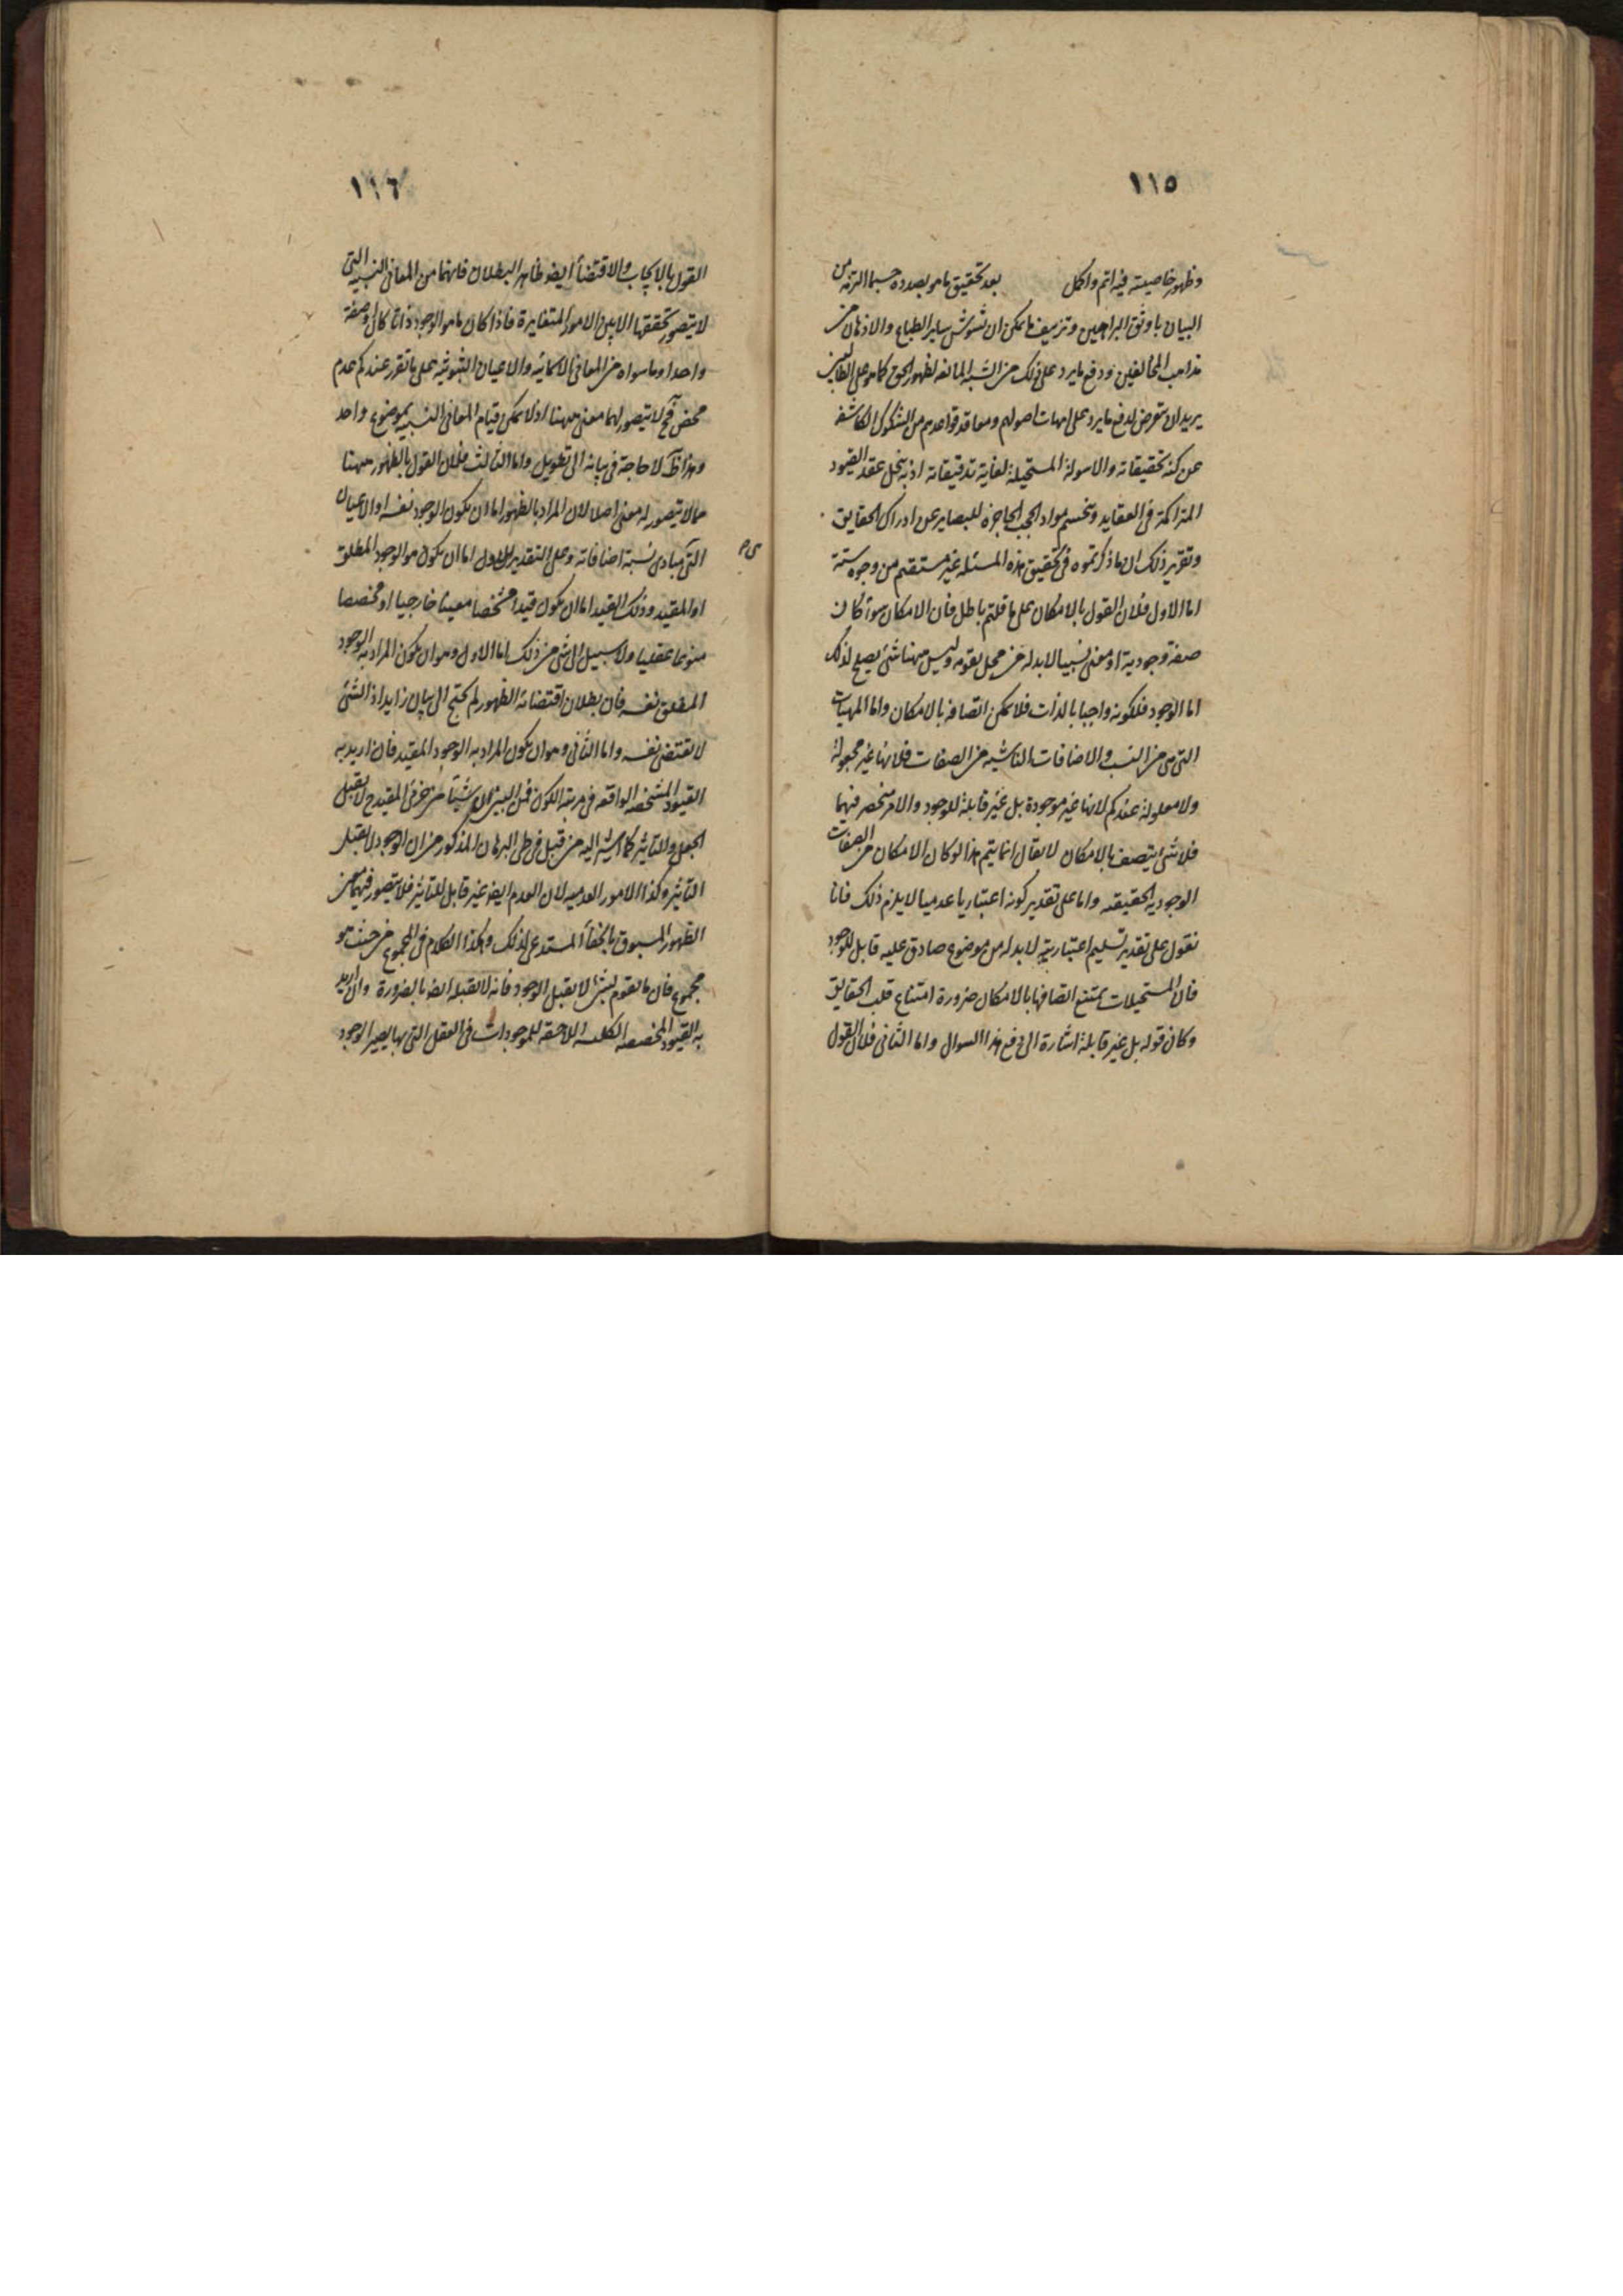 ١١٥
وظهور خاصيته فيه اتم واكمل بعد تحقيق ما هو بصدده حسبما التزمه من
البيان باوثق البراهين وتزييف ما يمكن ان تشوش ساير الطباع والاذهان من
مذاهب المخالفين ودفع ما يرد على ذلك من الشبه المانعه لظهور الحق كما هو على الطالبين
يريد ان يتعرض لدفع ما يرد على امهات اصولهم ومعاقد قواعدهم من الشكوك الكاشفة
عن كنه تحقيقاته والاسولة المستحيلة لغاية تدقيقاته اذ به ينحل عقد القيود
المتراكمة فى العقايد وتنحسم مواد الحجب الحاجزة للبصاير عن ادراك الحقايق
وتقرير ذلك ان ما ذكرتموه فى تحقيق هذه المسئلة غير مستقيم من وجوه ستة
اما الاول فلان القول بالامكان على ما قلتم باطل فان الامكان سواء كان
صفة وجودية او معنى نسبيا لا بد له من محل يقوم به وليس ههنا شئ يصلح لذلك
اما الوجود فلكونه واجبا بالذات فلا يمكن اتصافه بالامكان واما المهيات
التى هى من النسب والاضافات الناشية من الصفات فلانها غير مجعولة
ولا معلولة عندكم لانها غير موجودة بل غير قابلة للوجود والامر منحصر فيهما
فلا شئ يتصف بالامكان لا يقال انما يتم هذا لو كان الامكان من الصفات
الوجودية الحقيقيه واما على تقدير كونه اعتباريا عدميا لا يلزم ذلك فانا
نقول على تقدير تسليم اعتباريته لا بد له من موضوع صادق عليه قابل للوجود
فان المستحيلات يمتنع اتصافها بالامكان ضرورة امتناع قلب الحقايق
وكان قوله بل غير قابلة اشارة الى دفع هذا السوال واما الثانى فلان القول
١١٦
القول بالايجاب والاقتضاء ايضا ظاهر البطلان فانهما من المعانى النسبية التى
لا يتصور تحققها الا بين الامور المتغايرة فاذا كان ما هو الوجود ذاتا كان او صفة
واحدا وما سواه من المعانى الاسمائيه والاعيان الثبوتيه على ما تقرر عندكم عدم
محض فح لا يتصور لهما معنى ههنا اذ لا يمكن قيام المعانى النسبيه بموضوع واحد
وهذا ظ لا حاجة فى بيانه الى تطويل واما الثالث فلان القول بالظهور ههنا
مما لا يتصور له معنى اصلا لان المراد بالظهور اما ان يكون الوجود نفسه او الاعيان
التى مبادى نسبة اضافاته وعلى التقدير الاول اما ان يكون هو الوجود المطلق
هى م
او المقيد وذلك القيد اما ان يكون قيدا مشخصا معينا خارجيا او مخصصا
منوعا عقليا ولا سبيل الى شئ من ذلك اما الاول وهو ان يكون المراد به الوجود
المطلق نفسه فان بطلان اقتضائه الظهور لم يحتج الى بيان زايد اذ الشئ
لا يقتضى نفسه واما الثانى وهو ان يكون المراد به الوجود المقيد فان اريد به
القيود المشخصه الواقعه فى مرتبة الكون فمن البين ان شيئا من جزئى المقيد ح لا يقبل
الجعل والتاثير كما اشير اليه من قبل فى طى البرهان المذكور من ان الوجود لا يقبل
التاثير وكذا الامور العدميه لان العدم ايضا غير قابل للتاثير فلا يتصور فيهما معنى
الظهور المسبوق بالخفاء المستدعى لذلك وهكذا الكلام فى المجموع من حيث هو
مجموع فان ما يقوم بشئ لا يقبل الوجود فانه لا يقبله ايضا بالضرورة وان اريد
به القيود المخصصه الكلية اللاحقة للموجودات فى العقل التى بها يصير الوجود